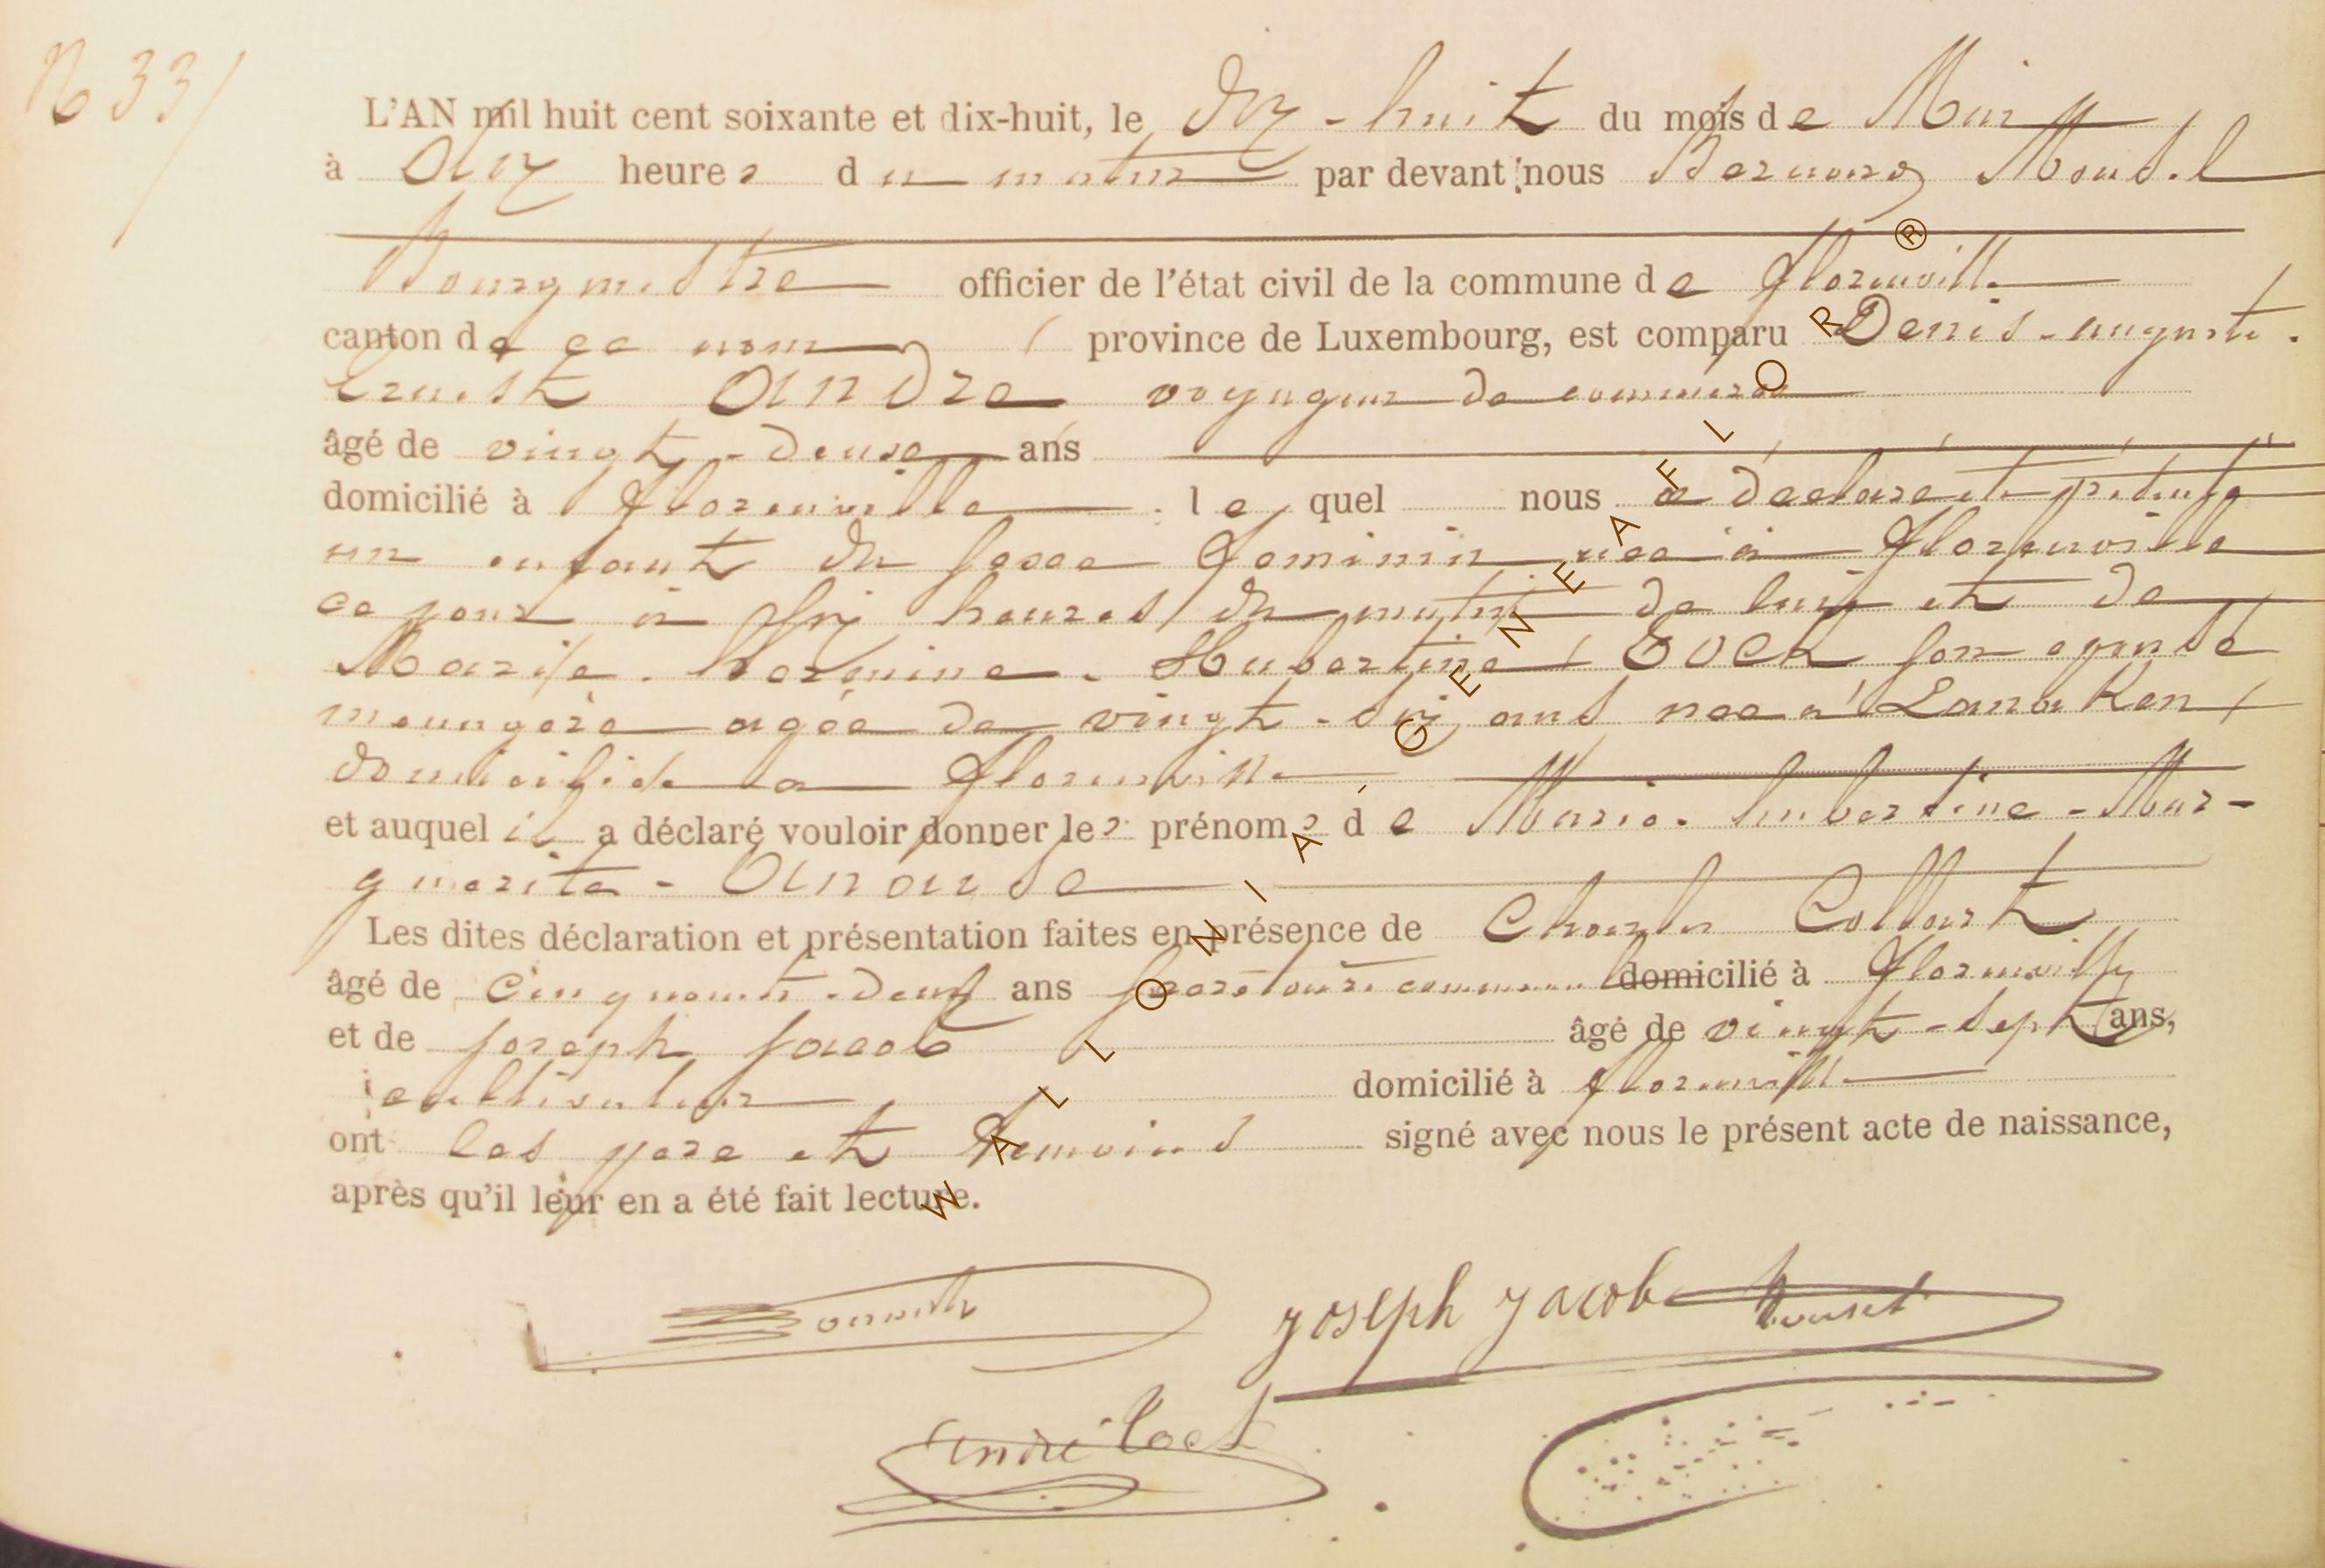 N° 33
L'AN mil huit cent soixante et dix-huit, le dix-huit du mois de Mai
à dix heures du matin par devant nous Bernard Mousel
Bourgmestre officier de l'état civil de la commune de florenville
canton de ce nom province de Luxembourg, est comparu Denis-auguste.
Ernest André voyageur de commerce
âgé de vingt-deux ans
domicilié à florenville lequel nous a déclaré et présenté
un enfant du sexe feminin née à florenville
ce jour à six heures du matin de lui et de
Marie. hermine. Hubertine Bock son epouse
menagère agée de vingt-six ans née à Lanaken
domiciliée a florenville
et auquel il a déclaré vouloir donner les prénoms de Marie. hubertine-Mar-
guerite-
Les dites déclaration et présentation faites en présence de Charles Collart
âgé de cinquante-deux ans secretaire communal domicilié à florenville
et de joseph jacob âgé de vingt-sept ans,
cultivateur domicilié à florenville
ont les pere et temoins signé avec nous le présent acte de naissance,
après qu'il leur en a été fait lecture.
joseph jacob Mousel
André
WALLONIA GENEA FLOR ®